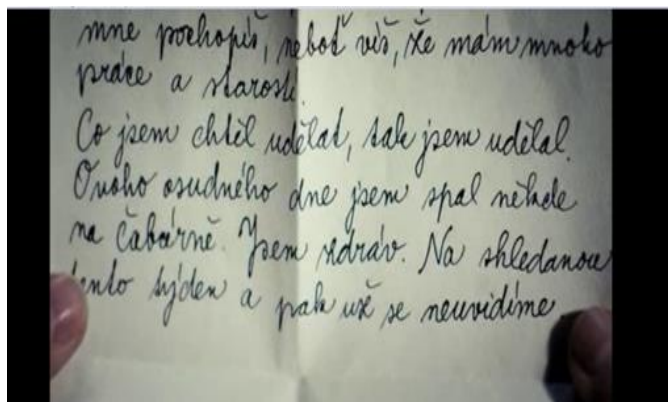 mne pochopíš, neboť víš, že mám mnoho
práce a starostí.
Co jsem chtěl udělat, tak jsem udělal.
Onoho osudného dne jsem spal někde
na čabárně. Jsem zdráv. Na shledanou
tento týden a pak už se neuvidíme